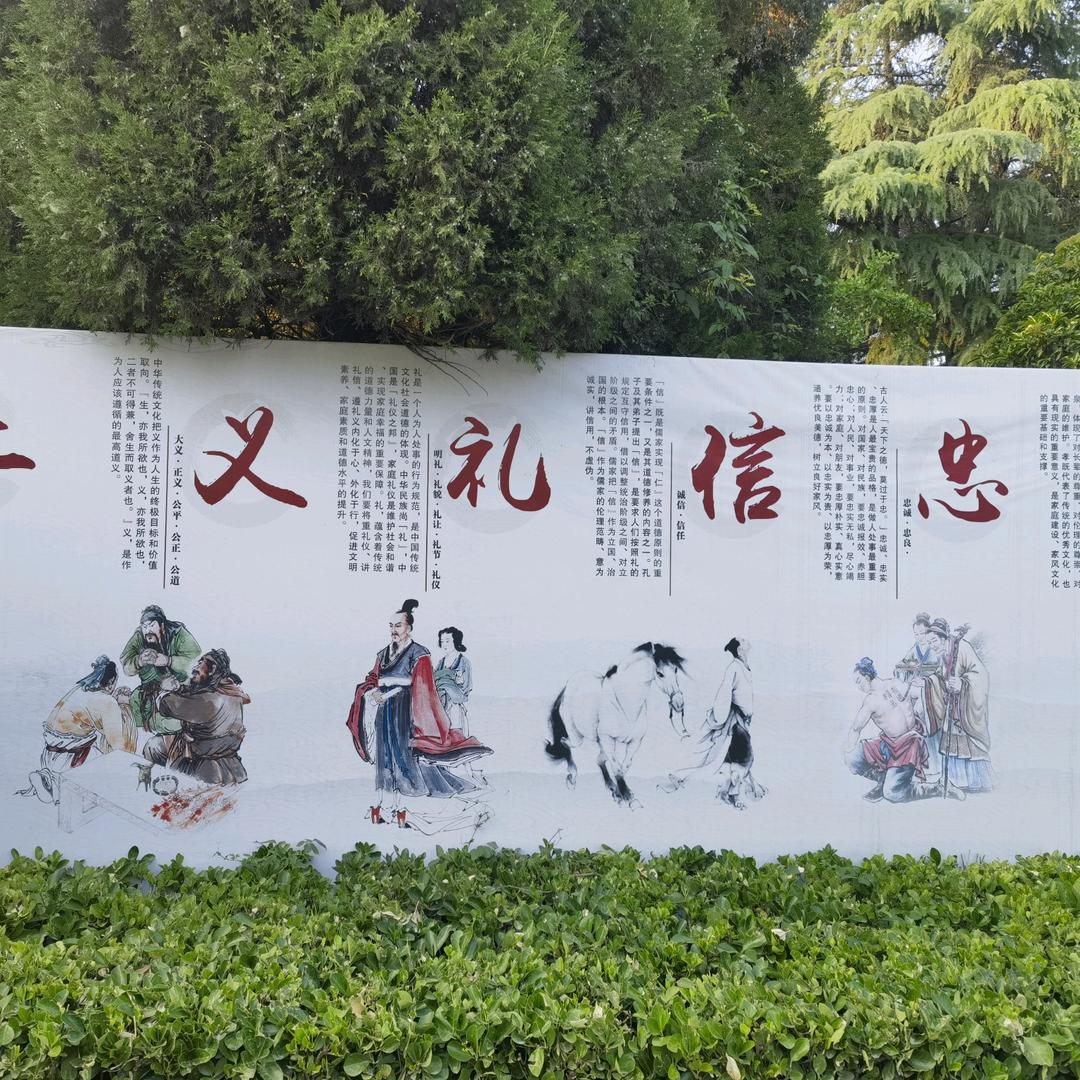 家庭的维护。孝既代表着传统的优秀文化，也
具有现实的重要意义，是家庭建设、家风文化
的重要基础和支撑。
忠
忠诚·忠良·
古人云「天下之德，莫过于忠。」忠诚、忠实
、忠厚是人最宝贵的品格，是做人处事最重要
的原则。对国家、对民族，要忠诚报效、赤胆
忠心；对人民、对事业，要忠实无私、尽心竭
力；对家庭、对朋友，要忠厚朴实、真心实意
。要以忠诚为本、以忠实为贵、以忠厚为荣，
涵养优良美德，树立良好家风。
信
诚信·信任
「信」既是儒家实现「仁」这个道德原则的重
要条件之一，又是其道德修养的内容之一。孔
子及其弟子提出「信」，是要求人们按照礼的
规定互守信用，借以调整统治阶级之间、对立
阶级之间的矛盾。儒家把「信」作为立国、治
国的根本。「信」作为儒家的伦理范畴、意为
诚实，讲信用，不虚伪。
礼
明礼·礼貌·礼让·礼节·礼仪
礼是一个人为人处事的行为规范，是中国传统
文化社会道德的体现。中华民族尚「礼」，中
国是「礼仪之邦」，家庭礼仪是维护社会和谐
、实现家庭幸福的重要保障。礼，蕴含着传统
的道德力量和人文精神，我们要将重礼仪、讲
礼信、遵礼义内化于心、外化于行，促进文明
素养、家庭素质和道德水平的提升。
义
大义·正义·公平·公正·公道
中华传统文化把义作为人生的终极目标和价值
取向。「生，亦我所欲也，义，亦我所欲也，
二者不可得兼，舍生而取义者也。」义，是作
为人应该遵循的最高道义。